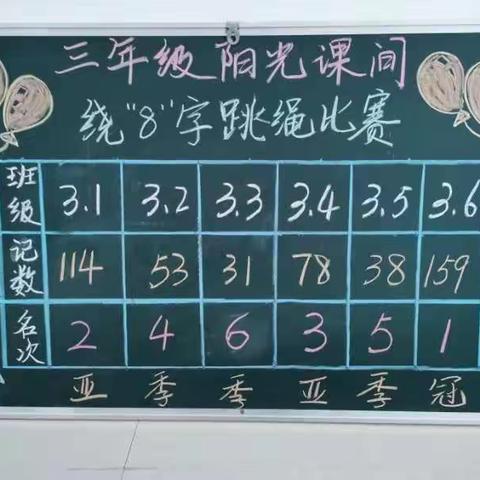 三年级阳光课间
绕"8"字跳绳比赛
班级 3.1 3.2 3.3 3.4 3.5 3.6
记数 114 53 31 78 38 159
名次 2 4 6 3 5 1
亚 季 季 亚 季 冠